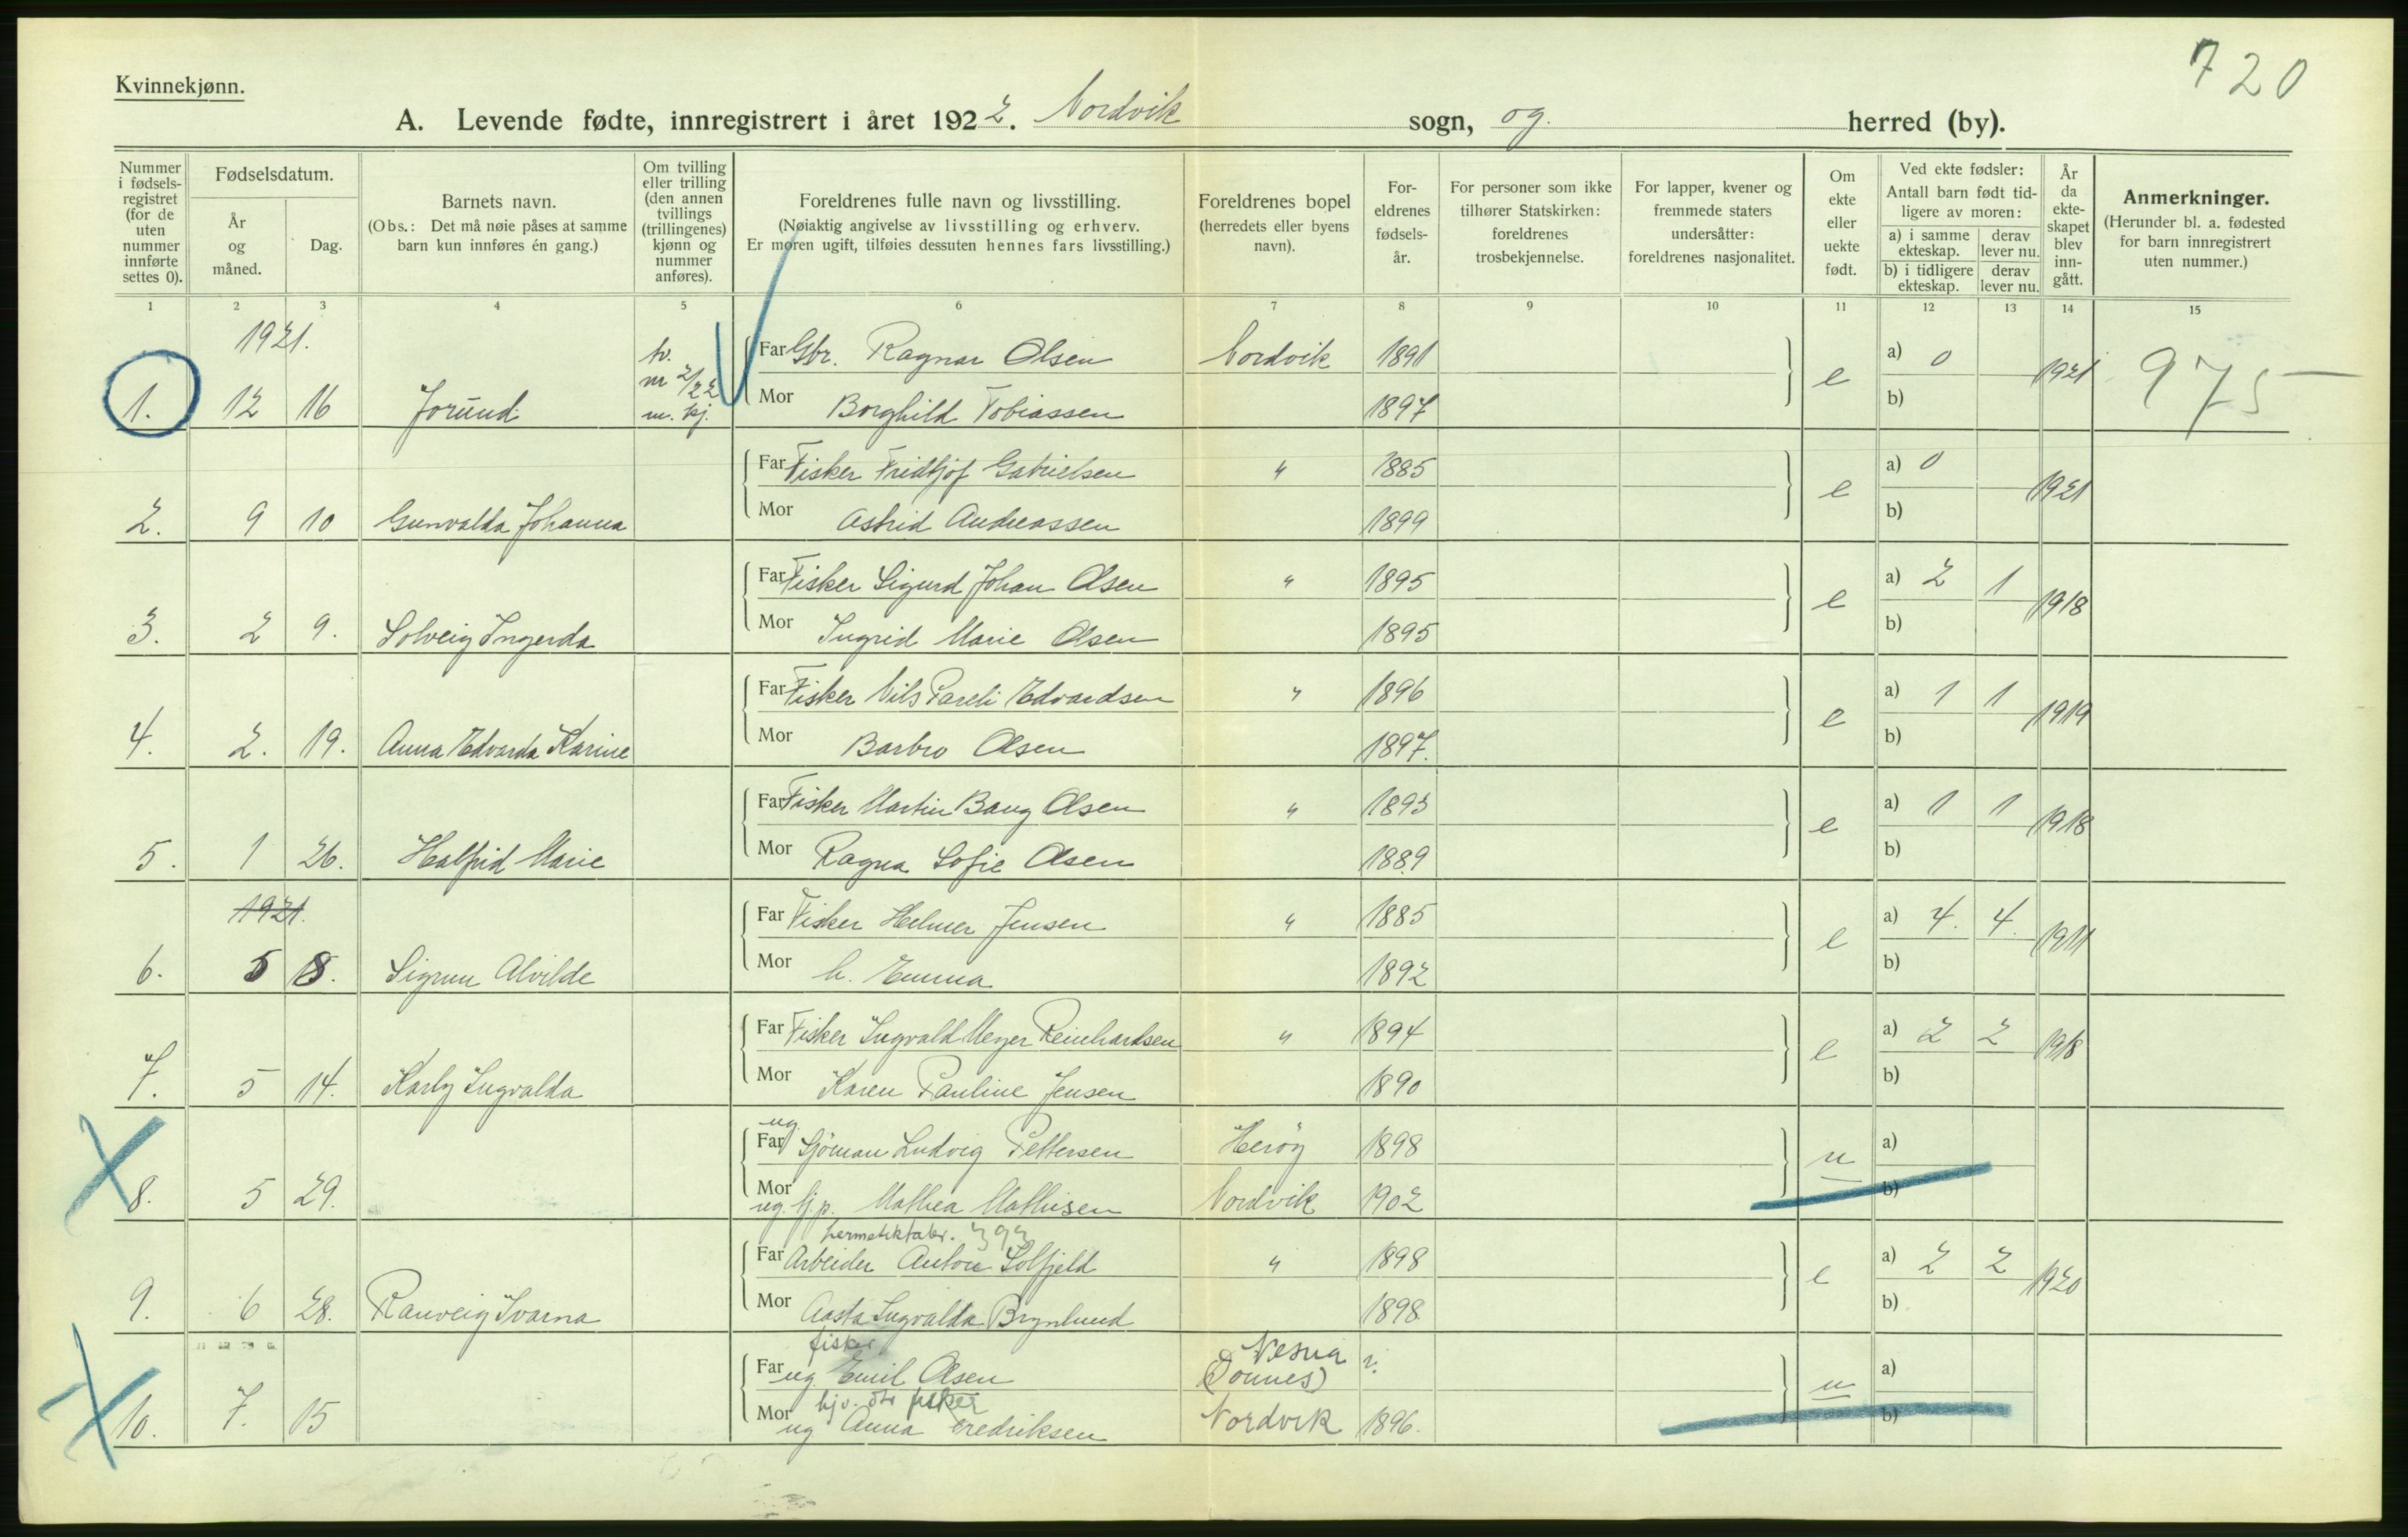 720
Kvinnekjønn.
A. Levende fødte, innregistrert i året 1922. Nordvik sogn, og herred (by).
Nummer i fødselsregistret (for de uten nummer innførte settes 0).
Fødselsdatum.
År og måned.
Dag.
Barnets navn.
(Obs.: Det må nøie påses at samme barn kun innføres én gang.)
Om tvilling eller trilling (den annen tvillings (trillingenes) kjønn og nummer anføres).
Foreldrenes fulle navn og livsstilling.
(Nøiaktig angivelse av livsstilling og erhverv.
Er moren ugift, tilføies dessuten hennes fars livsstilling.)
Foreldrenes bopel
(herredets eller byens navn).
Foreldrenes fødselsår.
For personer som ikke tilhører Statskirken: foreldrenes trosbekjennelse.
For lapper, kvener og fremmede staters undersåtter: foreldrenes nasjonalitet.
Om ekte eller uekte født.
Ved ekte fødsler:
Antall barn født tidligere av moren:
a) i samme ekteskap. derav lever nu.
b) i tidligere ekteskap. derav lever nu.
År da ekteskapet blev inngått.
Anmerkninger.
(Herunder bl. a. fødested for barn innregistrert uten nummer.)
1 2 3 4 5 6 7 8 9 10 11 12 13 14 15
1921.
1. 12 16 Jorund tv. nr 2/22 m. kj. Far Gbr. Ragnar Olsen Nordvik 1891 e a) 0 1921 975
Mor Borghild Tobiassen 1897 b)
2. 9 10 Gunvalda Johanna Far Fisker Fridtjof Gabrielsen " 1885 e a) 0 1921
Mor Astrid Andreassen 1899 b)
3. 2 9. Solveig Ingerda Far Fisker Sigurd Johan Olsen " 1895 e a) 2 1 1918
Mor Ingrid Marie Olsen 1895 b)
4. 2. 19. Anna Edvarda Karine Far Fisker Nils Pareli Edvardsen " 1896 e a) 1 1 1919
Mor Barbro Olsen 1897. b)
5. 1 26. Halfrid Marie Far Fisker Martin Bang Olsen " 1893 e a) 1 1 1918
Mor Ragna Sofie Olsen 1889 b)
1921.
6. 5 8. Sigrun Alvilde Far Fisker Helmer Jensen " 1885 e a) 4. 4. 1911
Mor h. Emma 1892 b)
7. 5 14. Karly Ingvalda Far Fisker Ingvald Meyer Reinhardsen " 1894 e a) 2 2 1918
Mor Karen Pauline Jensen 1890 b)
8. 5 29. ug. Far Sjöman Ludvig Pettersen Heröy 1898 u a)
Mor ug. tj.p. Mathea Mathisen Nordvik 1902 b)
hermetikfabr. 393
9. 6 28. Ranveig Ivarna Far Arbeider Anton Solfjeld " 1898 e a) 2 2 1920
Mor Aasta Ingvalda Brynlund 1898 b)
fisker
10. 7. 15 Far ug. Emil Olsen Nesna (Dønnes) ?. u a)
hjv. dtr fisker
Mor ug Anna Fredriksen Nordvik 1896. b)